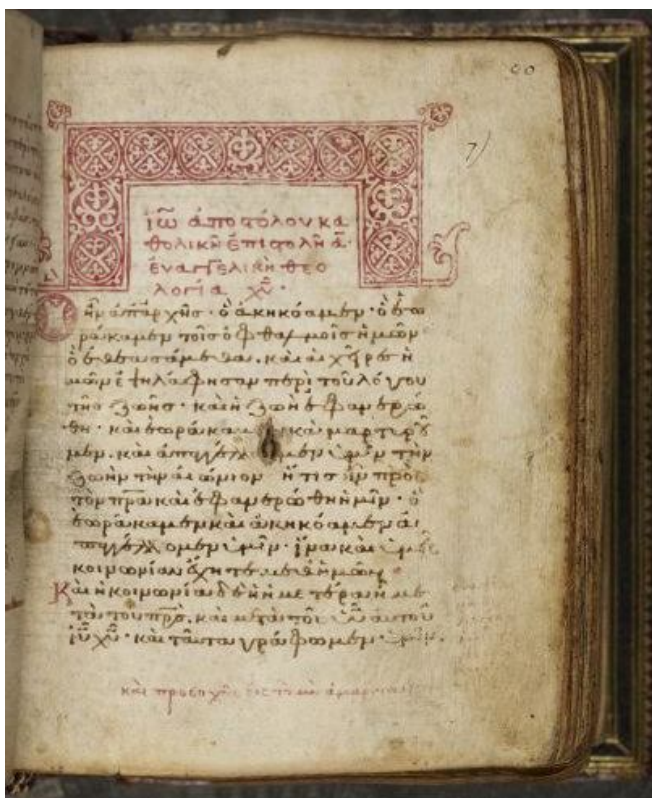 ἰῶ ἀποστόλου κα
θολικὴ ἐπιστολὴ ᾱ
ἐυαγγελικὴ θεο
λογία χῦ·
Ὃ ἦν ἀπαρχῆς· ὃ ἀκηκόαμεν· ὃ ἑω
ράκαμεν τοῖς ὀφθαλμοῖς ἡμῶν
ὃ ἐθεασάμεθα. καὶ αἱ χεῖρες ἡ
μῶν ἐψηλάφησαν περὶ τοῦ λόγου
τῆς ζωῆς· καὶ ἡ ζωὴ ἐφανερώ
θη· καὶ ἑωράκαμεν καὶ μαρτυροῦ
μεν. καὶ ἀπαγγέλλομεν ὑμῖν τὴν
ζωὴν τὴν αἰώνιον ἥτις ἦν πρὸς
τὸν πρᾱ καὶ ἐφανερώθη ἡμῖν· ὃ
ἑωράκαμεν καὶ ἀκηκόαμεν ἀ
παγγέλλομεν ὑμῖν· ἵνα καὶ ὑμεῖς
κοινωνίαν ἔχητε μεθ ἡμῶν
Καὶ ἡ κοινωνία δὲ ἡ ἡμετέρα ἡ με
τὰ τοῦ πρς. καὶ μετὰ τοῦ υῦ αὐτοῦ
ἰῦ χῦ· καὶ ταῦτα γράφομεν ὑμῖν.